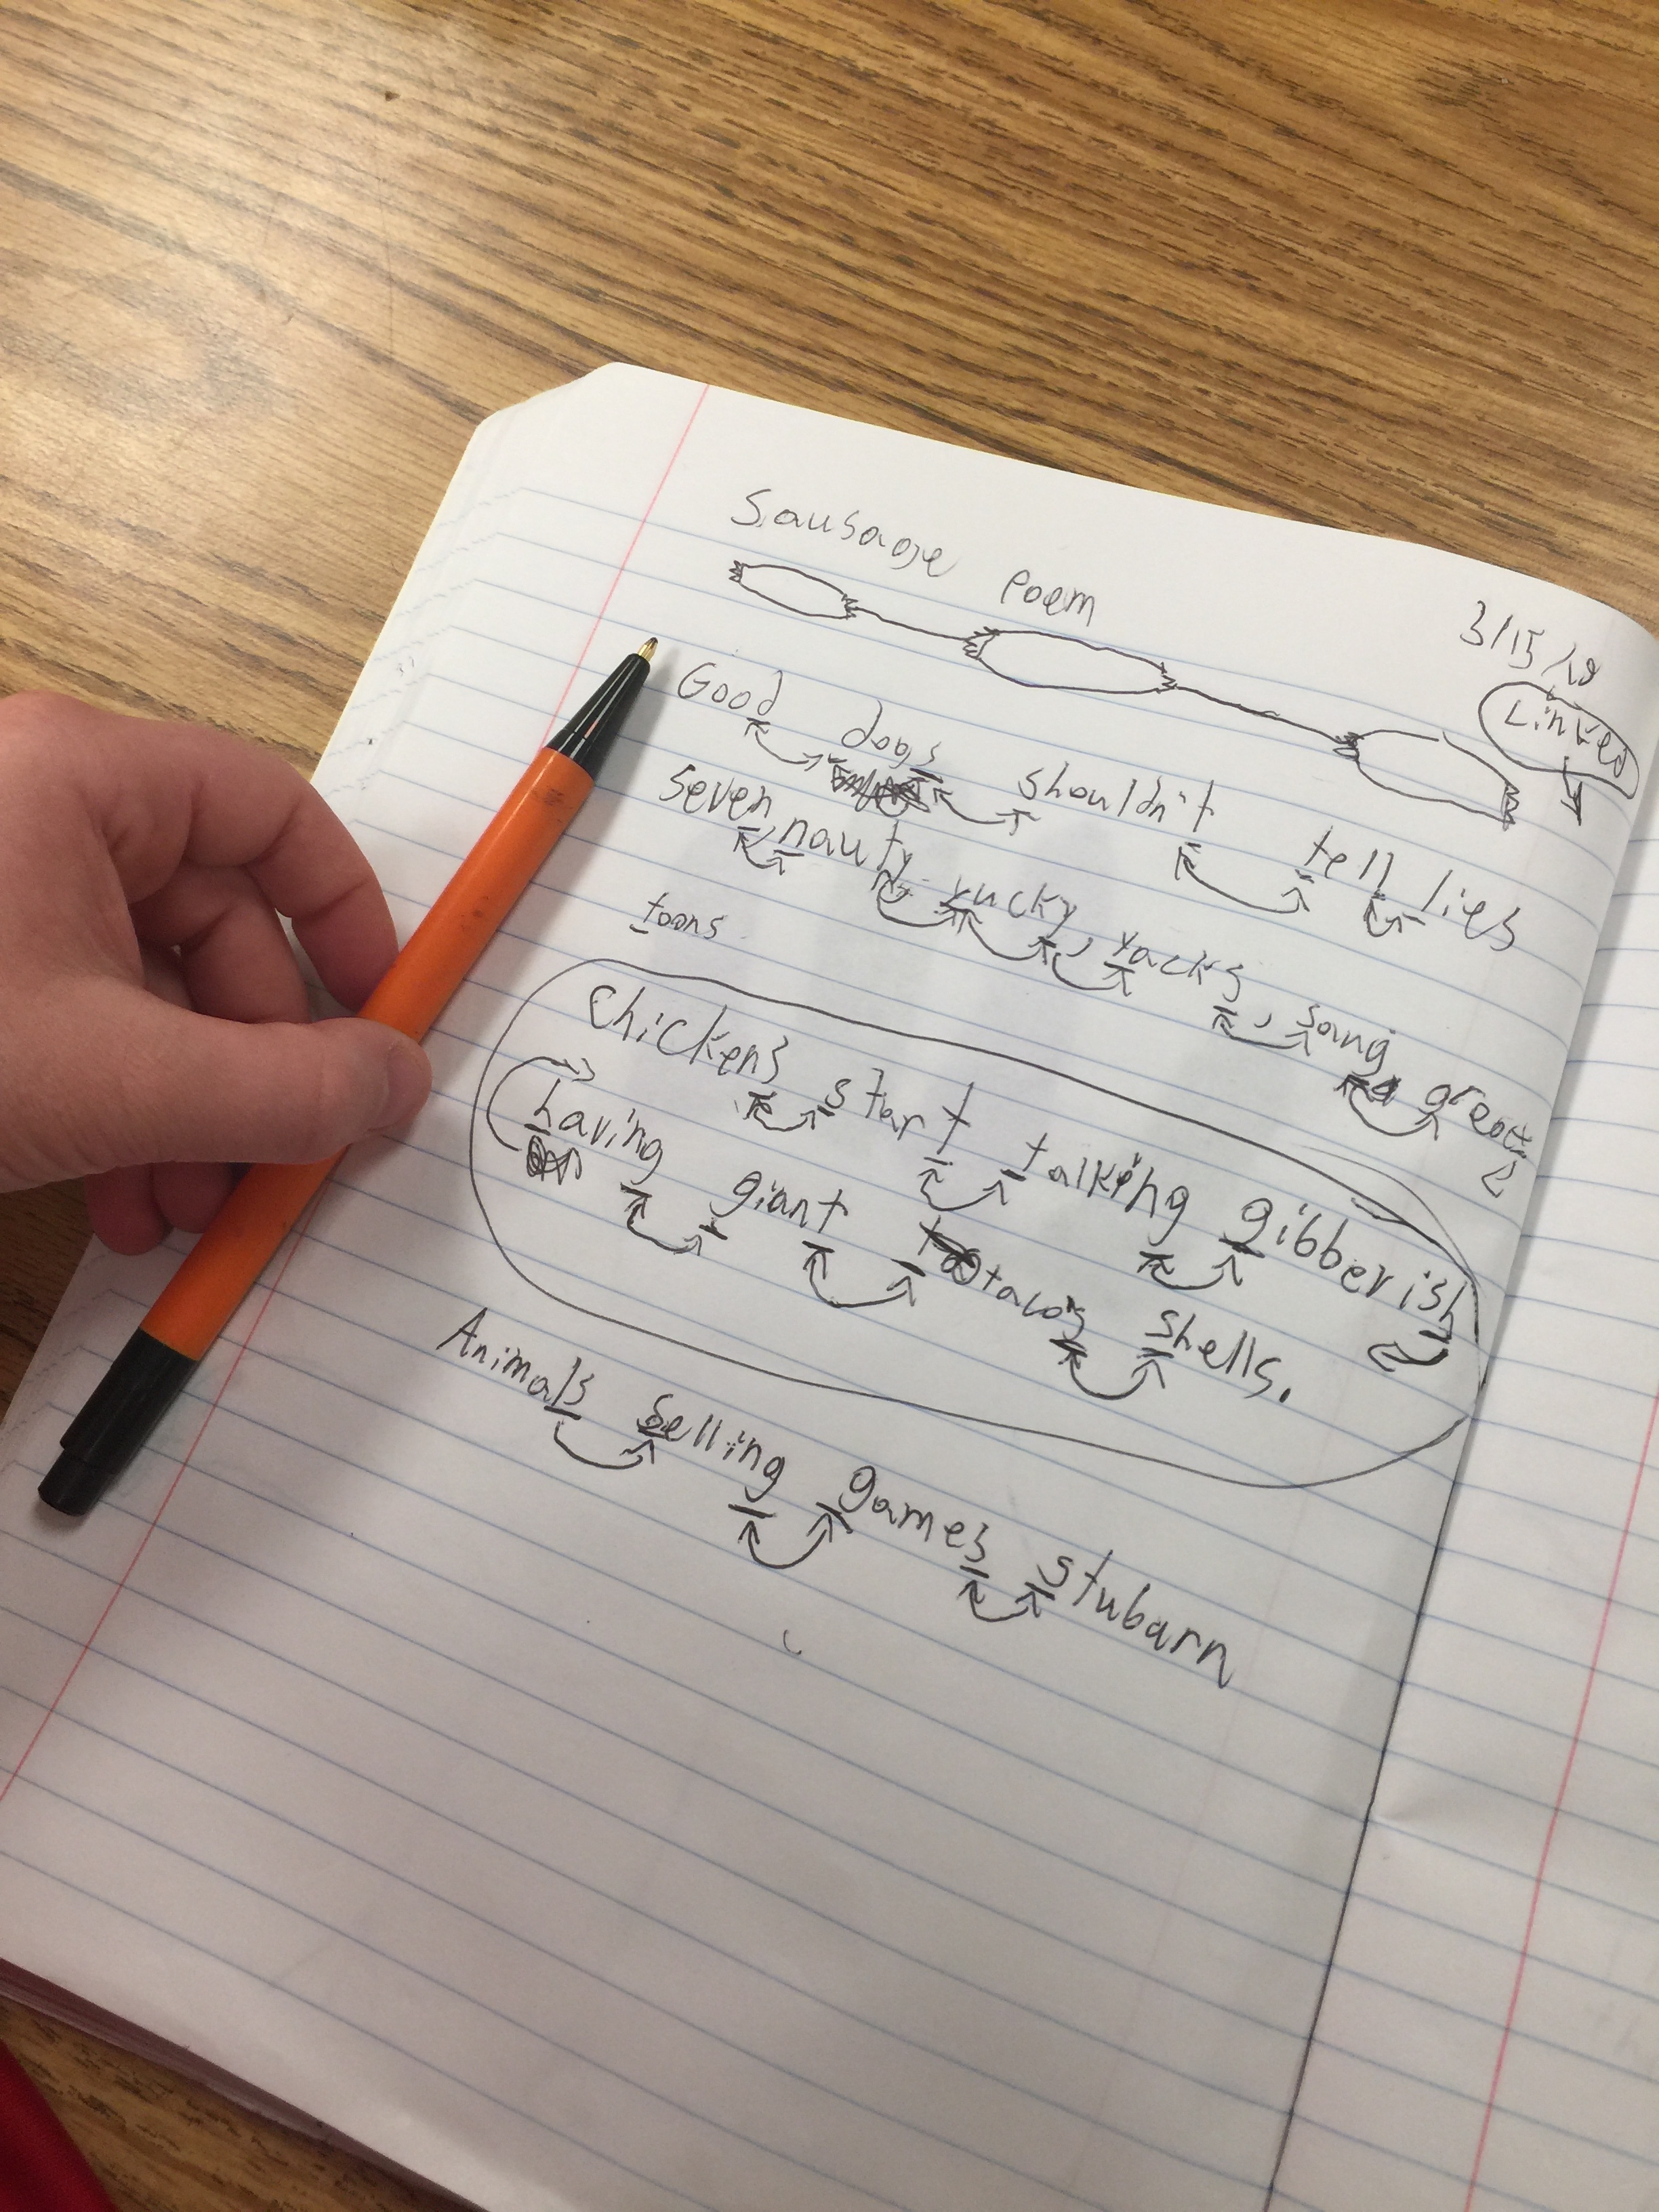 Sausage Poem
3/15/18
Linked
Good dogs shouldn't tell lies
Seven nauty yucky, yacks, sang great
toons
Chickens start talking gibberish
having giant tacos shells.
Animals selling games stubarn